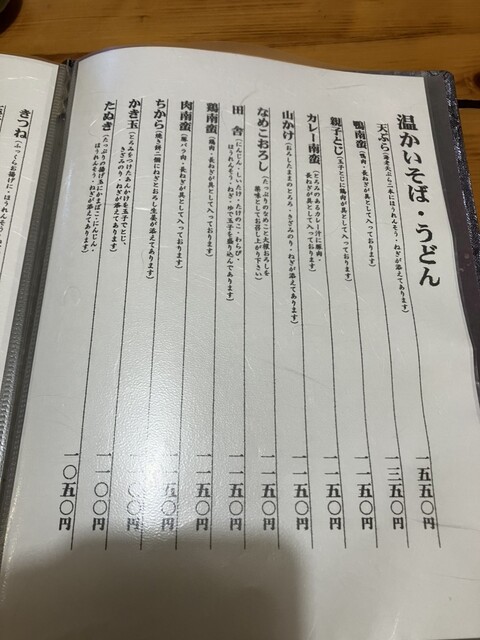 温かいそば・うどん
天ぷら（海老天ぷら二本にほうれんそう・ねぎが添えてあります） 一五五〇円
鴨南蛮（鴨肉・長ねぎが具として入っております） 一三五〇円
親子とじ（玉子とじに鶏肉が具として入っております） 一一五〇円
カレー南蛮（とろみのあるカレー汁に豚肉
・長ねぎが具として入っております） 一一五〇円
山かけ（おろしたままのとろろ・きざみのり・ねぎが添えてあります） 一一五〇円
なめこおろし（たっぷりのなめこと大根おろしを
薬味としてお召し上がり下さい） 一一五〇円
田舎（にんじん・しいたけ・たけのこ・わらび・
ほうれんそう・ねぎ・ゆで玉子を盛り込んであります） 一一五〇円
鶏南蛮（鶏肉・長ねぎが具として入っております） 一一五〇円
肉南蛮（豚バラ肉・長ねぎが具として入っております） 一一五〇円
ちから（焼き餅二個にねぎとおろし生姜が添えてあります） 一一〇〇円
かき玉（とろみをつけたあんかけを玉子でとじ、
きざみのり、ねぎが添えてあります） 一一〇〇円
たぬき（たっぷりの揚げ玉にかまぼこ・にんじん・
ほうれんそう・ねぎが添えてあります） 一〇五〇円
きつね（ふっくらお揚げに・ほうれんそう・ね